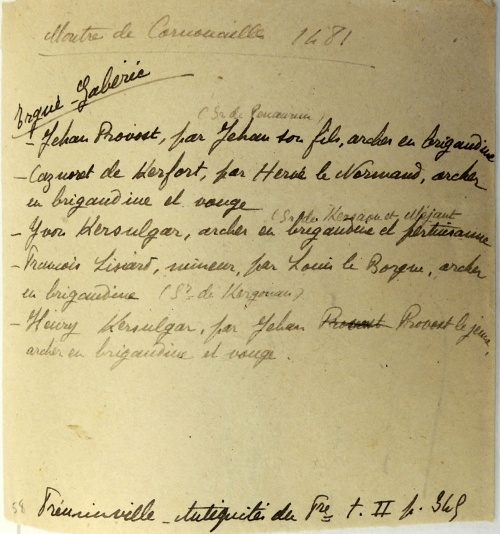 Montre de Cornouaille 1481
Ergué-Gabéric
(Sr de Penanrun)
- Jehan Provost, par Jehan son fils, archer en brigandine
- Caznevet de Kerfort, par Hervé le Normand, archer
en brigandine et vouge
(Sr de et Mézant
- Yvon Kersulgar, archer en brigandine et pertuisanne
- Francois Lisiard, mineur, par Louis le Borgne, archer
en brigandine (Sr de Kergonan)
- Henry Kersulgar, par Jehan Provost Provost le jeune,
archer en brigandine et vouge.
58 Fréminville - Antiquités du Fre t. II p. 345